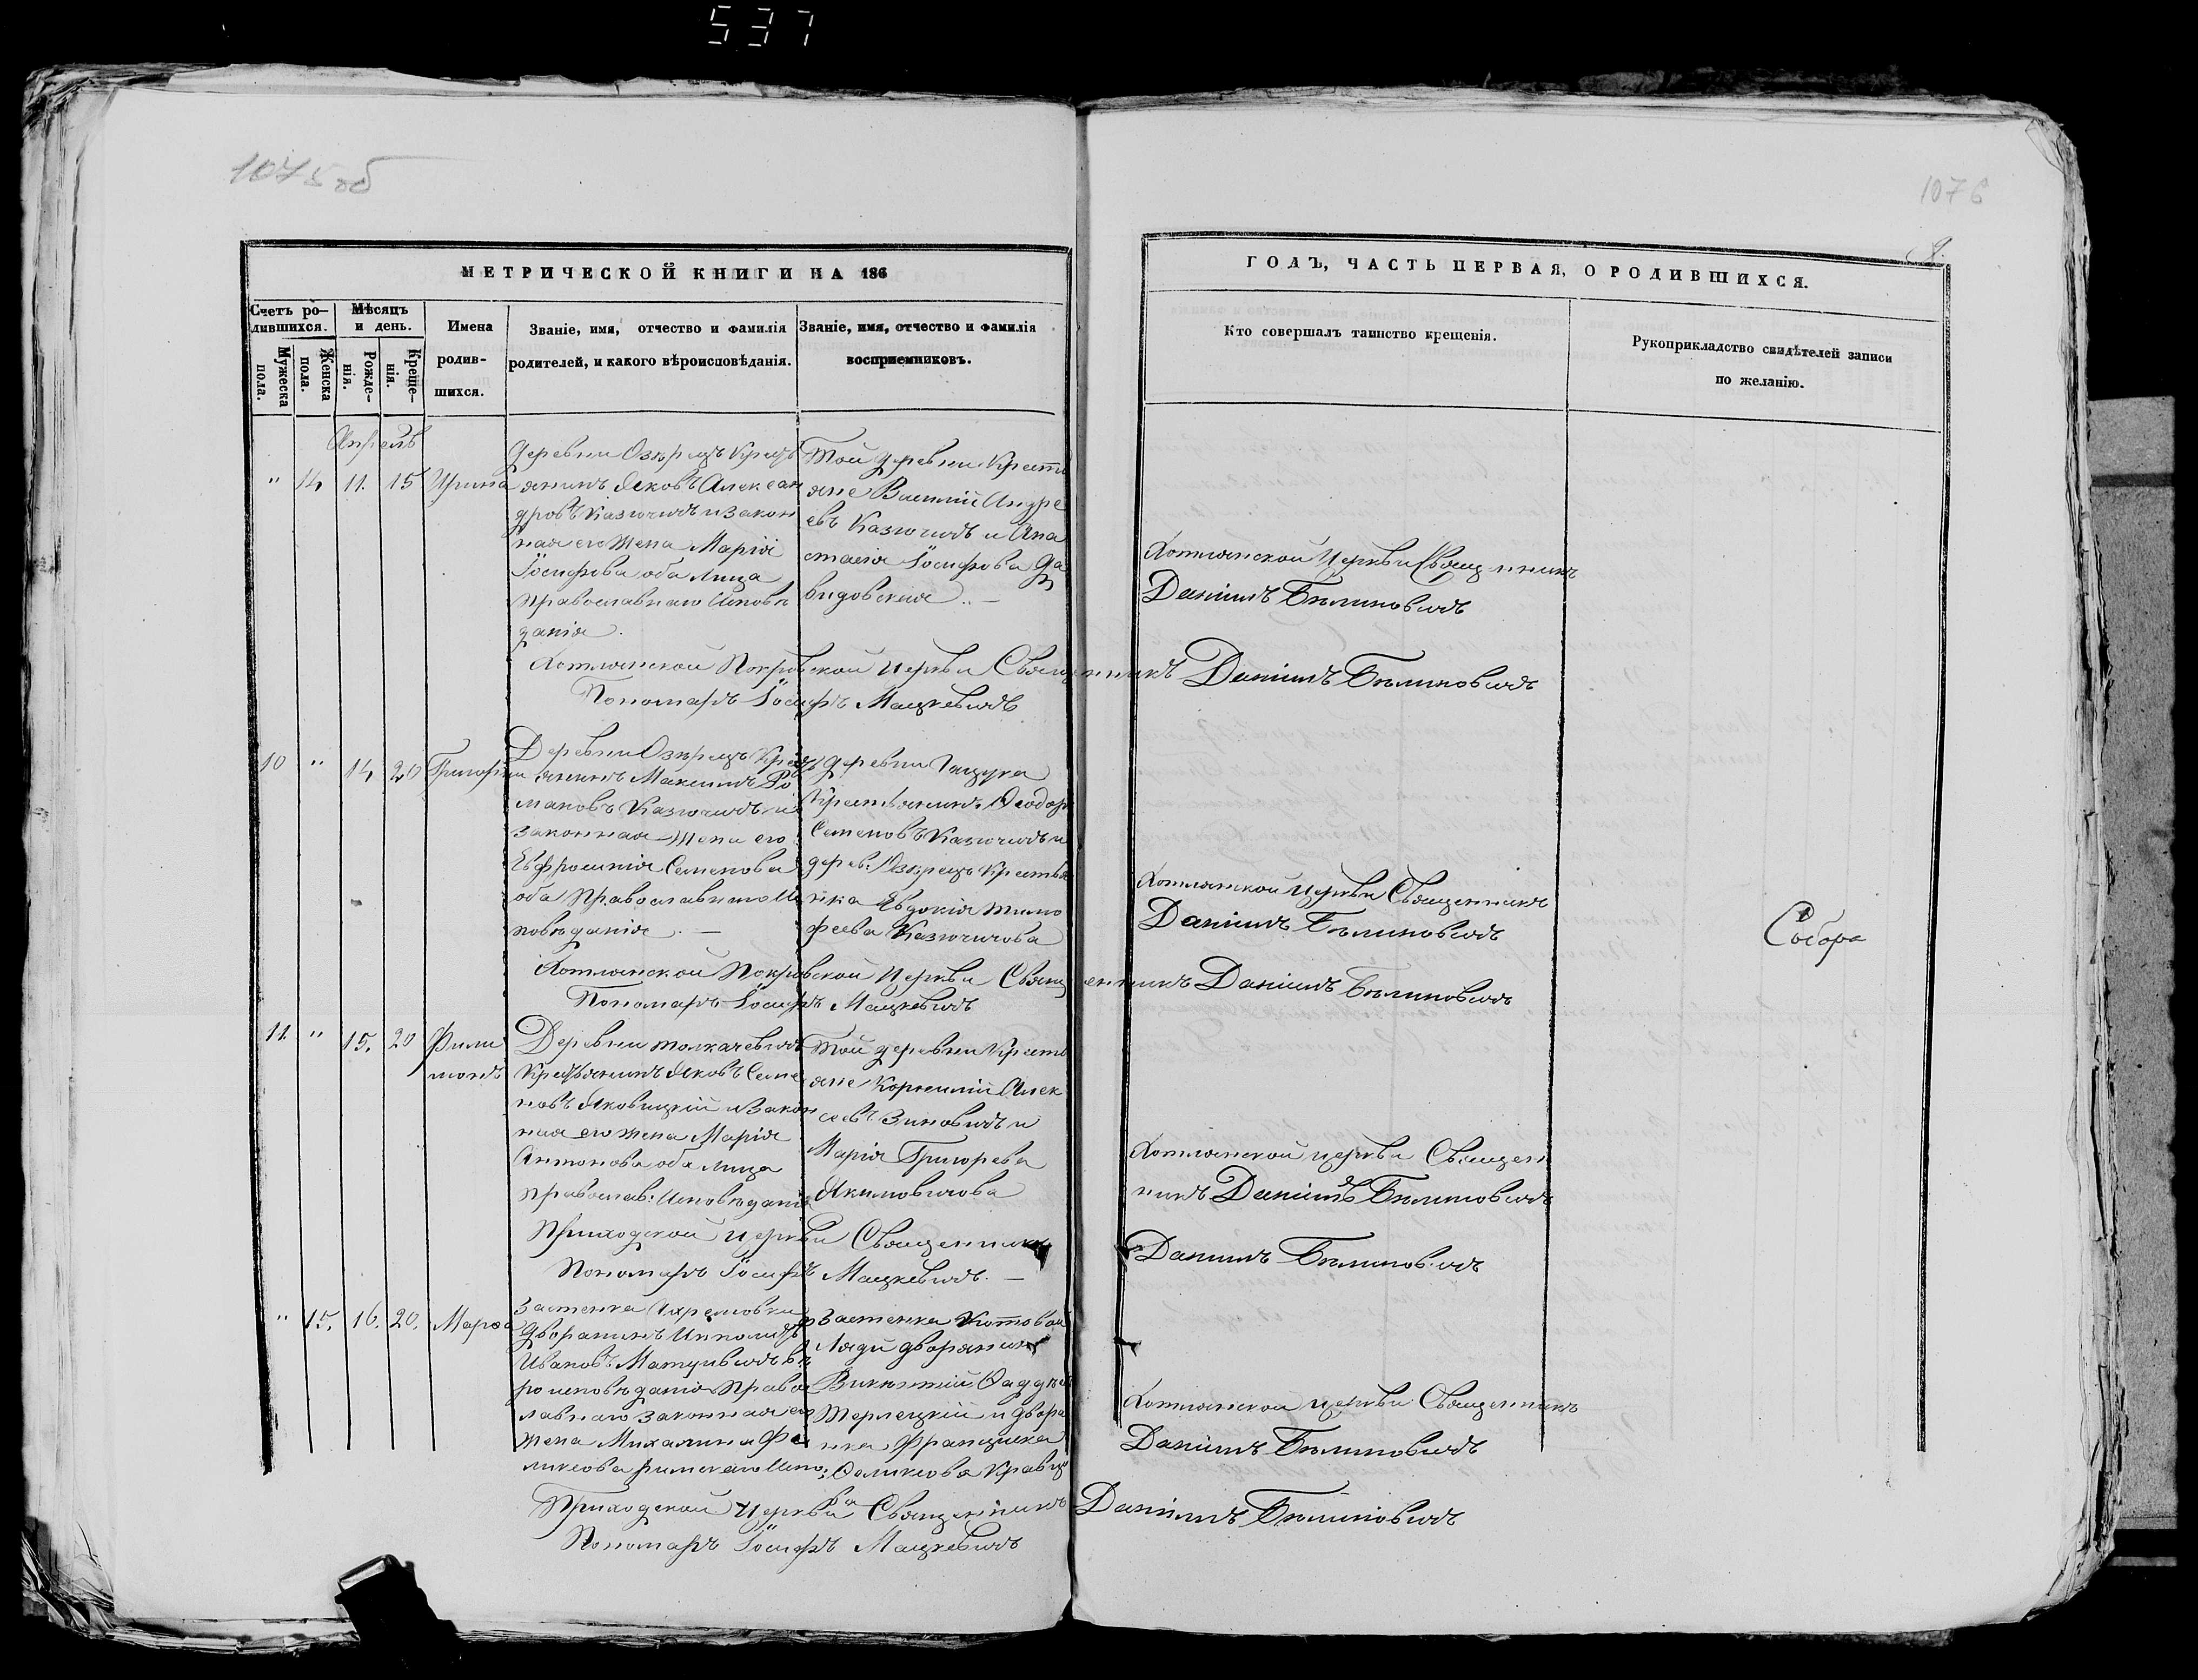 537
1075 об
1076
9.
МЕТРИЧЕСКОЙ КНИГИ НА 186
ГОДЪ, ЧАСТЬ ПЕРВАЯ, О РОДИВШИХСЯ.
Счетъ ро-
дившихся.
Мужеска
пола.
Женска
пола.
Мѣсяцъ
и день.
Рожде-
нія.
Креще-
нія.
Имена
родив-
шихся.
Званіе, имя, отчество и фамилія
родителей, и какого вѣроисповѣданія.
Званіе, имя, отчество и фамилія
воспріемниковъ.
Кто совершалъ таинство крещенія.
Рукоприкладство свидѣтелей записи
по желанію.
Апрель
" 14 11. 15 Ирина
деревни Озерецъ Крест
янинъ Яковъ Алексан
дровъ Казючичъ и закон
ная его жена Марія
Іосифова оба лица
православнаго исповѣ
данія.
Той деревни Кресть
яне Василій Андре
евъ Казючичъ и Ана
стасія Іосифова Да
видовская
Хотлянской Церкви Священникъ
Даніилъ Бѣлиновичъ
Хотлянской Покровской Церкви Священникъ Даніилъ Бѣлиновичъ
Пономарь Іосифъ Мацкевичъ
10 " 14 20 Григорій
Деревни Озерецъ Крест
янинъ Максимъ Ро
мановъ Казючичъ и
законная жена его
Евфросинія Семенова
оба Православнаго Ис
повѣданія. —
деревни
Крестьянинъ Ѳеодоръ
Семеновъ Казючичъ и
дерев. Озерецъ Крестья
нка Евдокія Тимо
феева Казючичова
Хотлянской Церкви Священникъ
Даніилъ Бѣлиновичъ
Собора
Хотлянской Покровской Церкви Священникъ Даніилъ Бѣлиновичъ
Пономарь Іосифъ Мацкевичъ
11. " 15. 20 Фили
монъ
Деревни Толкачевичъ
Крестьянинъ Яковъ Семе
новъ Яковицкій и закон
ная его жена Марія
Антонова оба лица
православ: исповѣданія
Той деревни Кресть
яне Корнилій Алек
сеевъ Зиновичъ и
Марія Григорева
Акимовичова
Хотлянской церкви Священ
никъ Даніилъ Бѣлиновичъ
Приходской Церкви Священникъ Даніилъ Бѣлиновичъ
Пономарь Іосифъ Мацкевичъ. —
" 15. 16. 20. Марѳа
Застенка
дворянинъ Ипполитъ
Ивановъ Матусевичъ вѣ
роисповѣданія Правос
лавнаго законная его
жена Михалина Фе
ликсова римскаго испо:
Застенка Котовой
Ляди дворянинъ
Викентій Ѳаддѣев
Терлецкій и дворя
нка Францишка
Феликсова Кравц
Хотлянской церкви Священникъ
Даніилъ Бѣлиновичъ
Приходской Церкви Священникъ Даніилъ Бѣлиновичъ
Пономарь Іосифъ Мацкевичъ